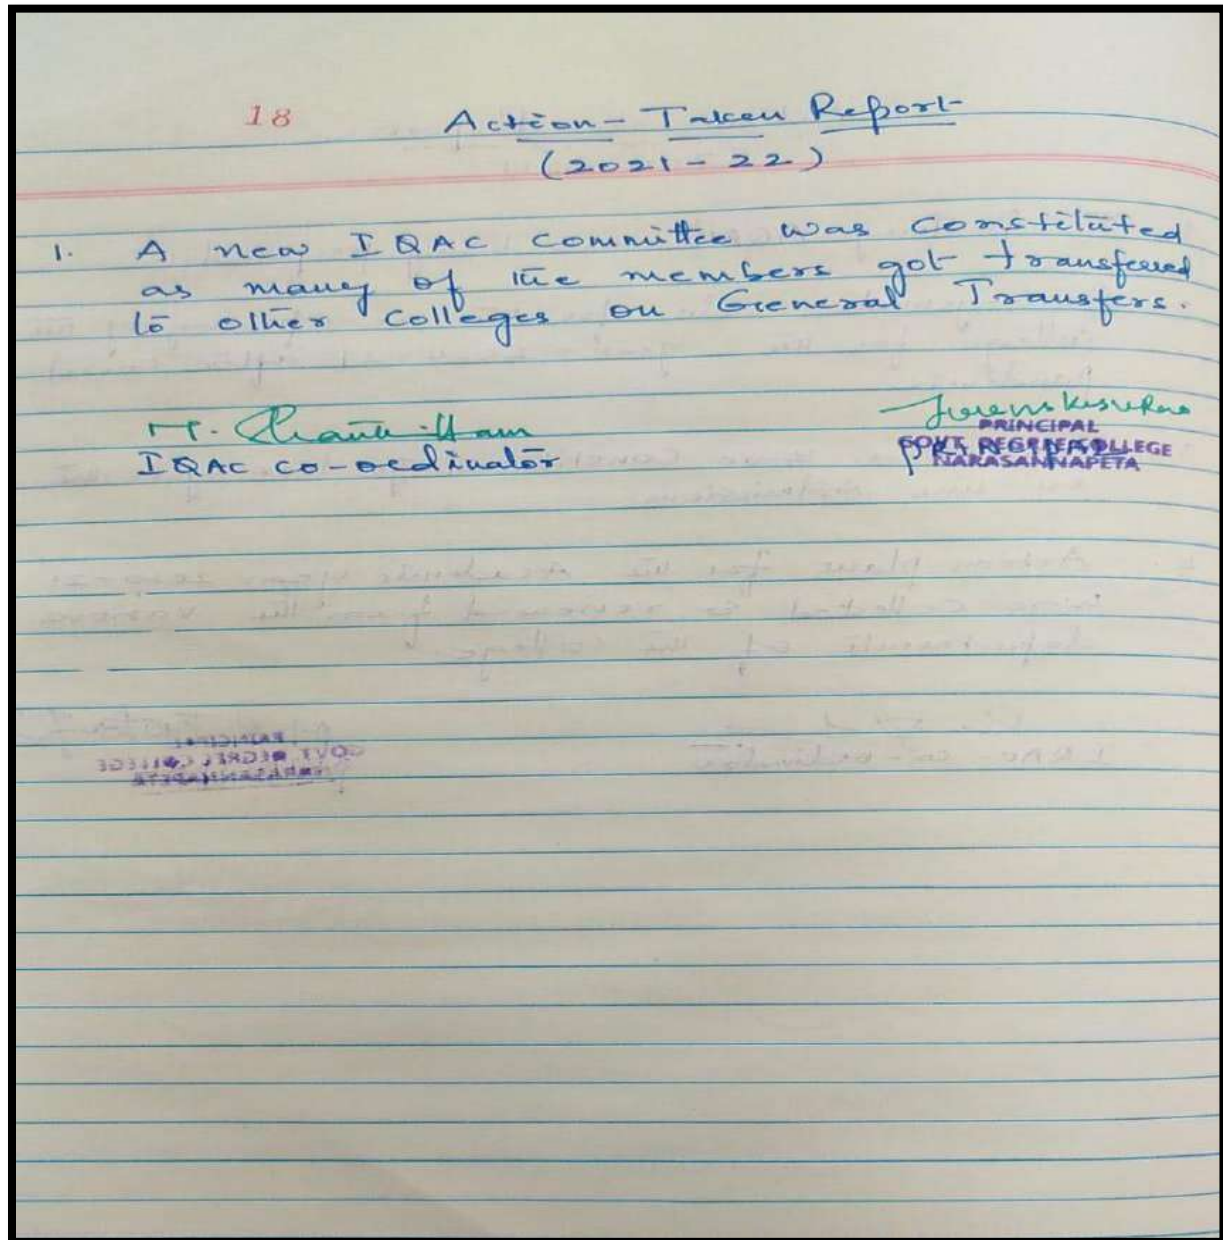 18
Action-Taken Report
(2021-22)
1. A new IQAC committee was constituted
as many of the members got transferred
to other Colleges on General Transfers.
IQAC co-ordinator
PRINCIPAL
GOVT. DEGREE COLLEGE
NARASANNAPETA